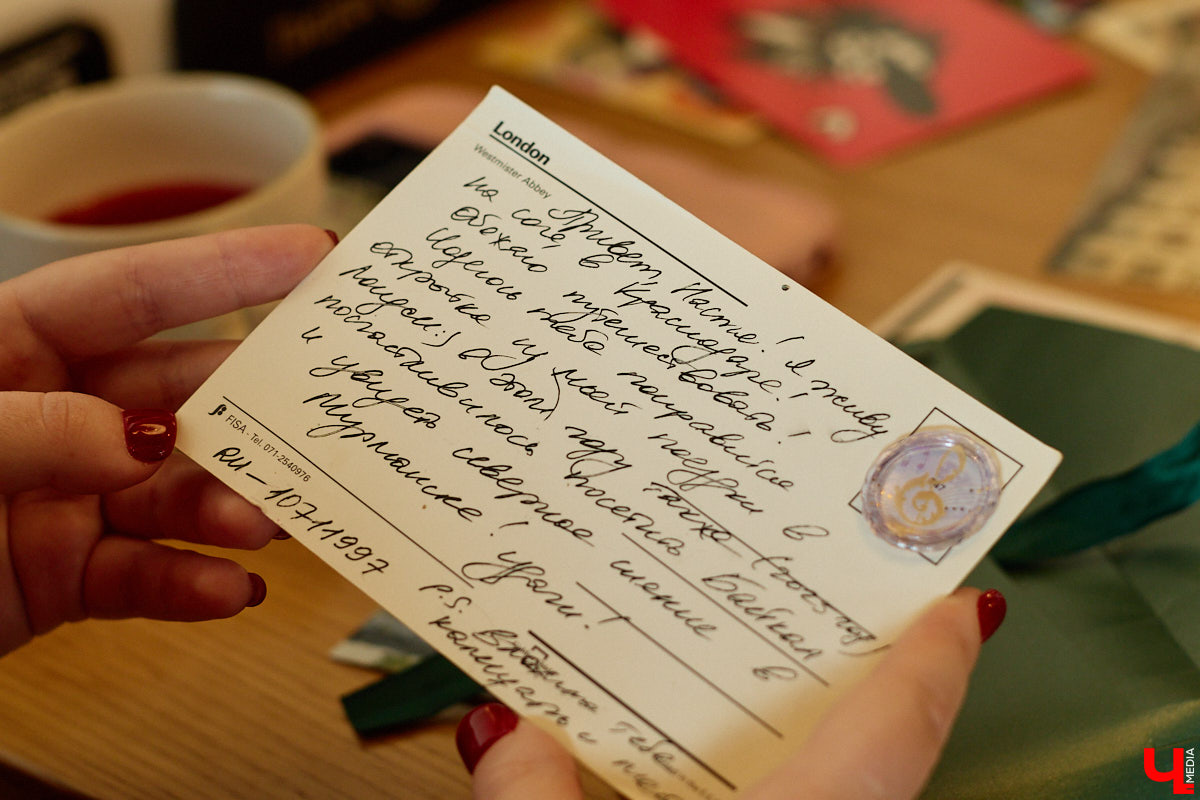 London
Westmister Abbey
Привет, Настя! Я живу
на юге, в Краснодаре!
Обожаю путешествовать!
Надеюсь тебе понравится
открытка из моей поездки в
Лондон:) в этом году
посчастливилось посетить Байкал
и увидеть северное сияние в
Мурманске! Удачи!
P.S. Вложила тебе
календарь и
β FISA - Tel. 071-2540976
RU-10711997
Ч MEDIA